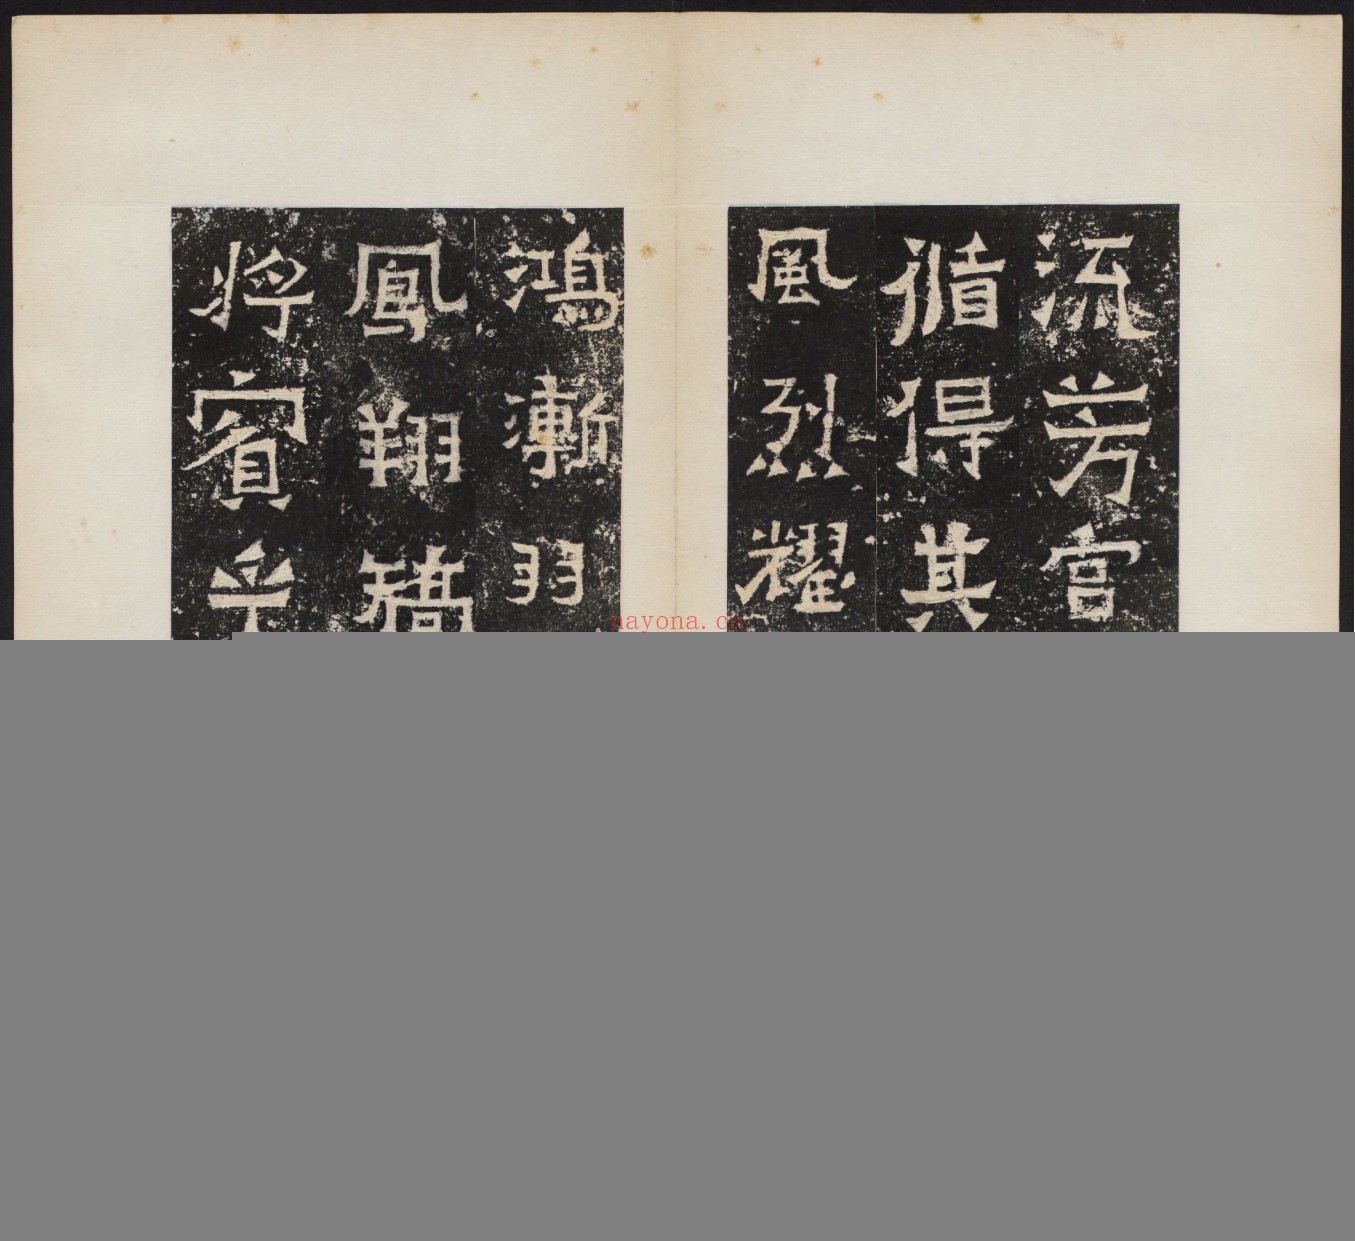 流芳宫
循得其
風烈耀
鴻漸羽
鳳翔矯
将賓乎
nayona.cn